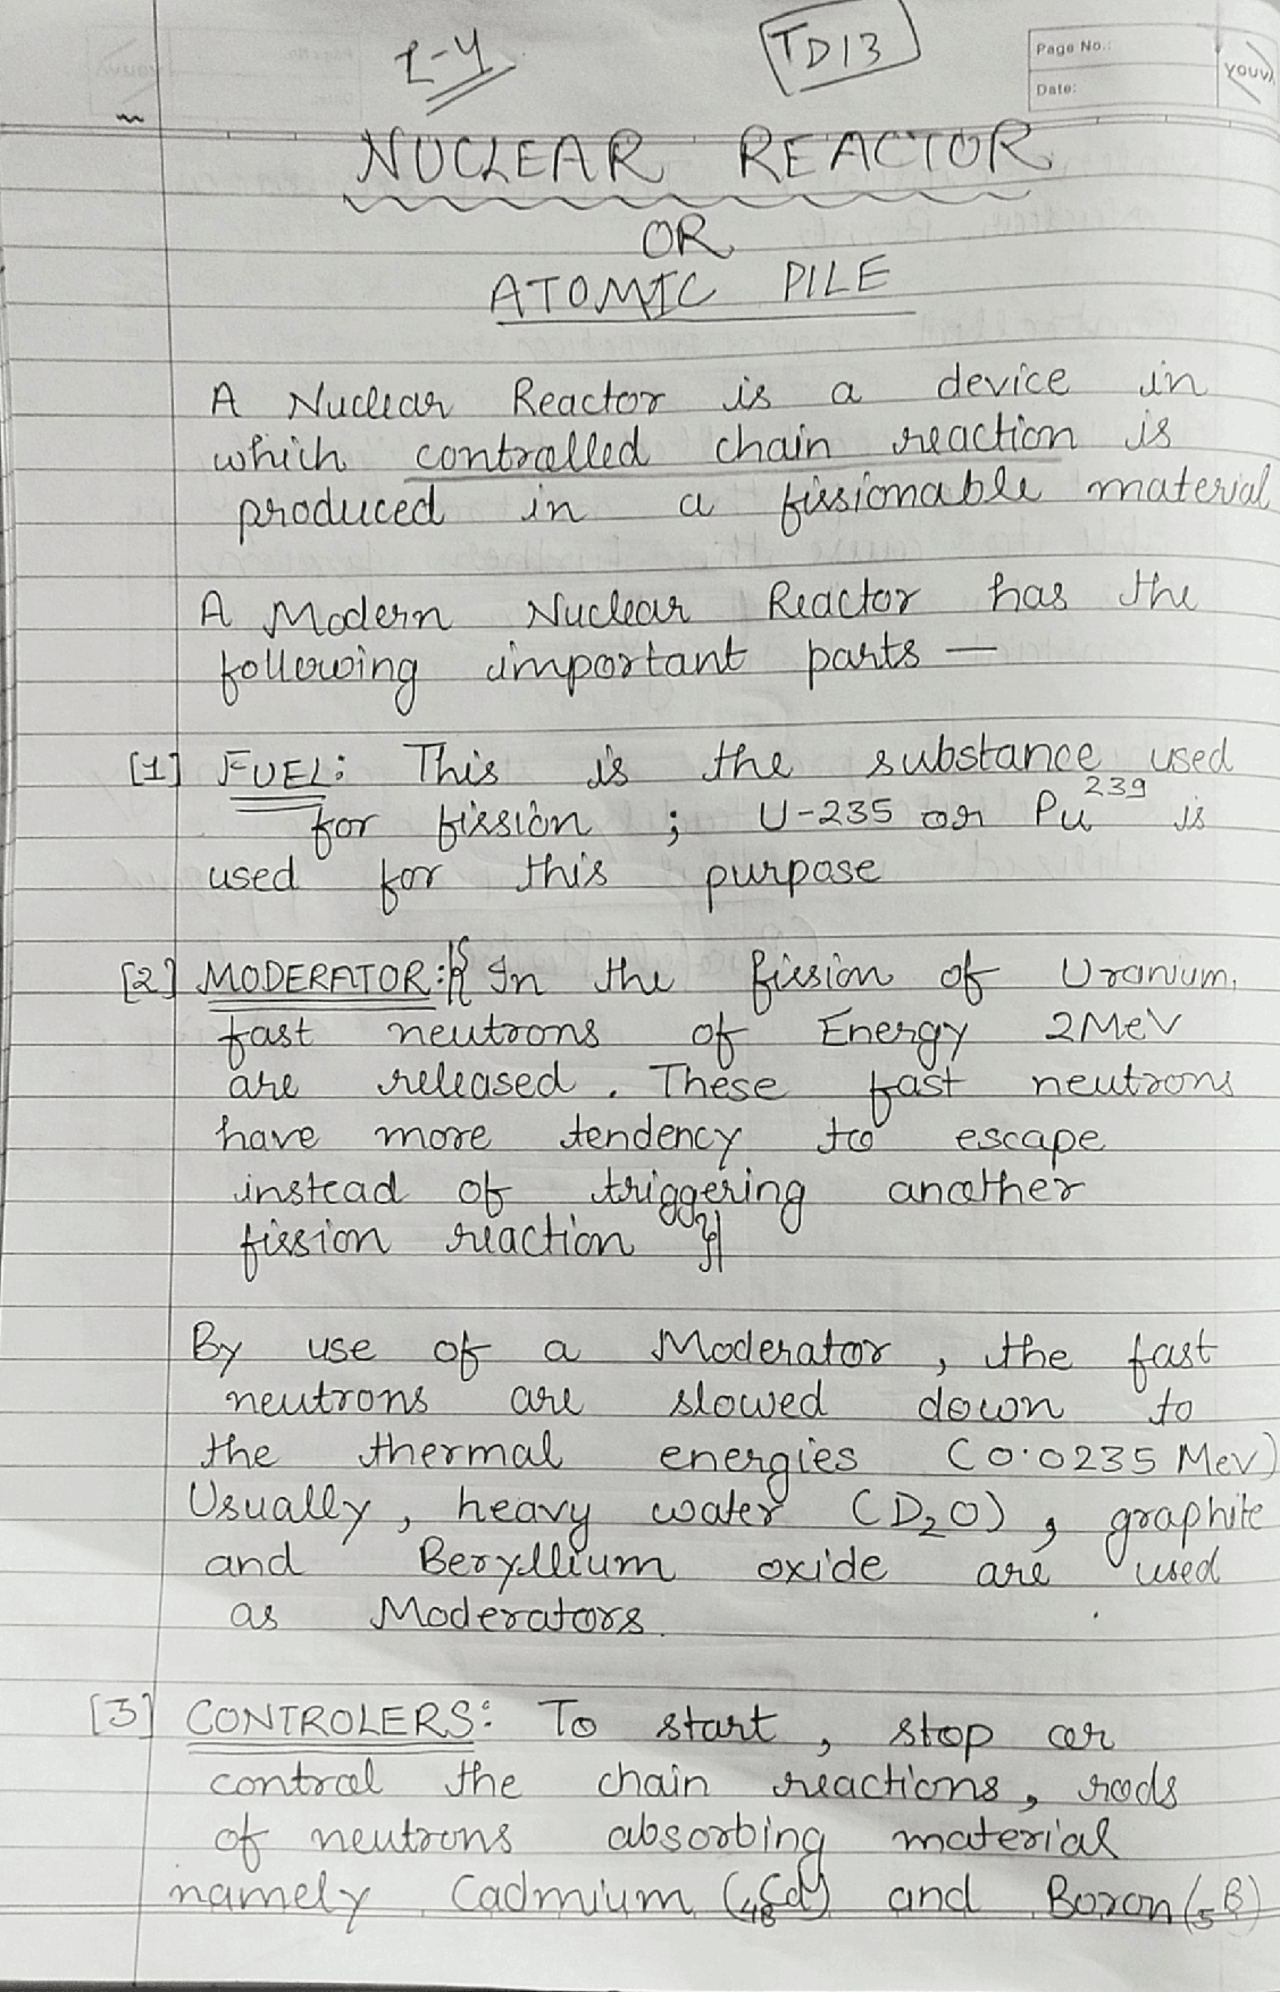 TD13
Page No.:
Date:
NUCLEAR REACTOR
OR
ATOMIC PILE
A Nuclear Reactor is a device in
which controlled chain reaction is
produced in a fissionable material
A Modern Nuclear Reactor has the
following important parts —
[1] FUEL: This is the substance used
for fission ; U-235 or Pu²³⁹ is
used for this purpose
[2] MODERATOR:{ In the fission of Uranium,
fast neutrons of Energy 2MeV
are released. These fast neutrons
have more tendency to escape
instead of triggering another
fission reaction }
By use of a Moderator, the fast
neutrons are slowed down to
the thermal energies (0.0235 Mev)
Usually, heavy water (D₂O), graphite
and Beryllium oxide are used
as Moderators.
[3] CONTROLERS: To start, stop or
control the chain reactions, rods
of neutrons absorbing material
namely Cadmium (₄₈Cd) and Boron (₅B)